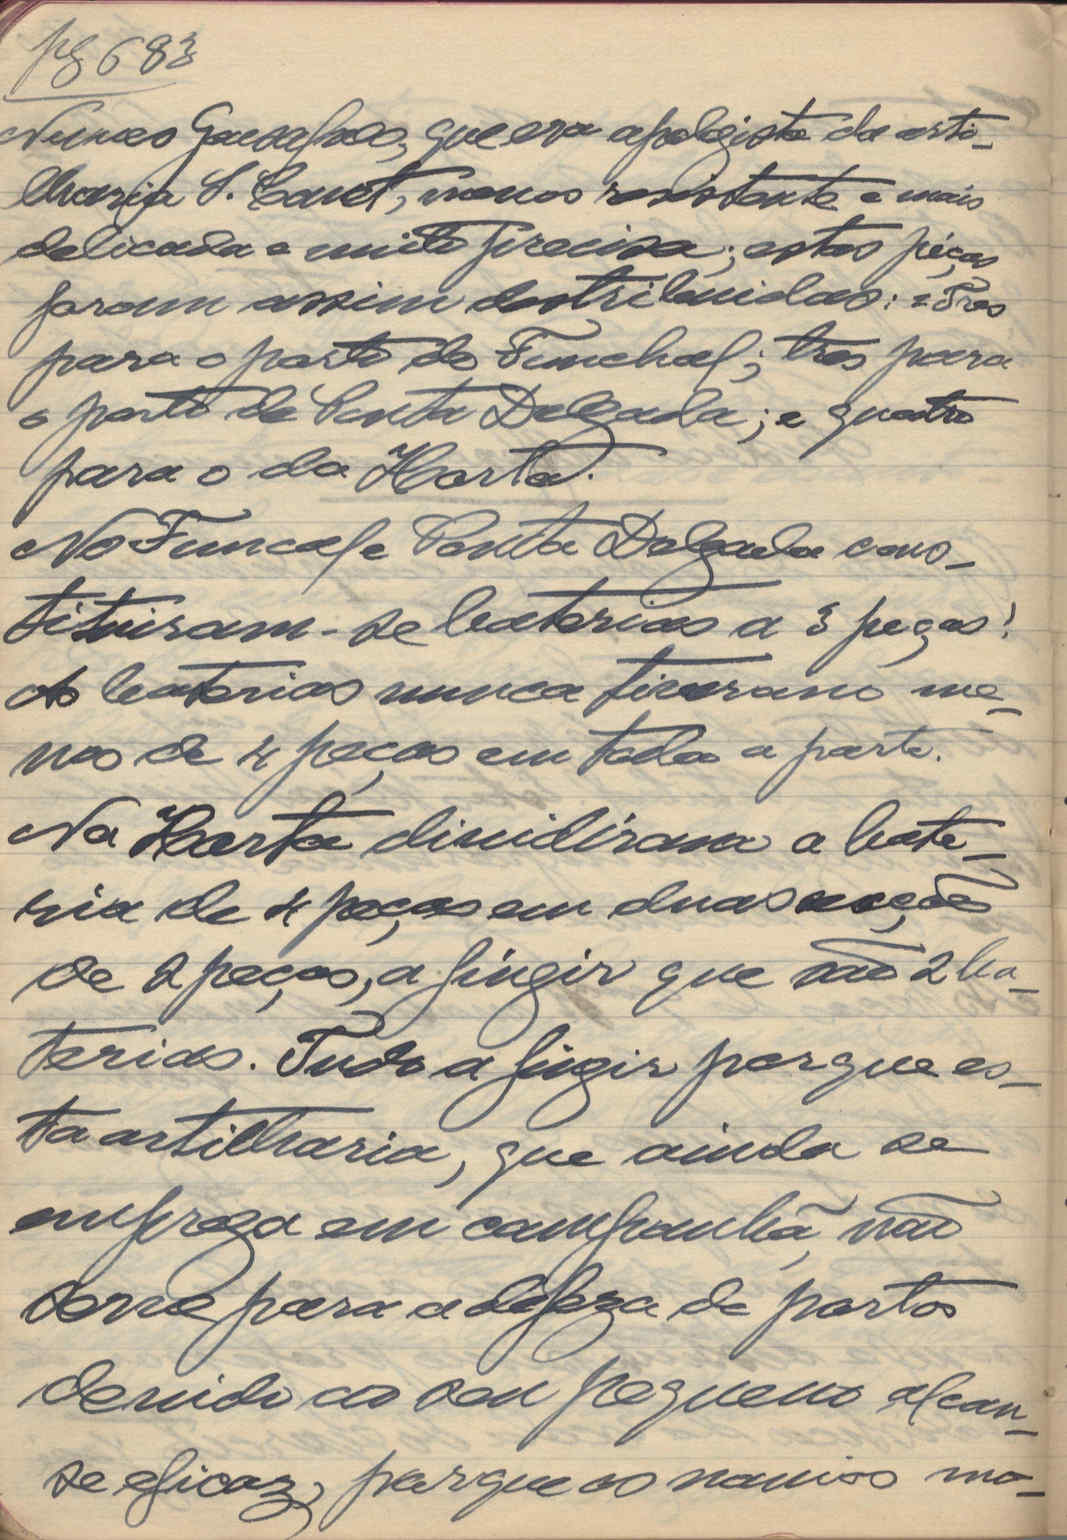 pg 683
Nunes Gonsalves, que era apologista da arti-
lharia S. Canet, menos resistente e mais
delicada e muito precisa; estas peças
foram assim destribuidas: = Tres
para o porto do Funchal; tres para
o porto de Ponta Delgada; e quatro
para o da Horta.
No Funcal e Ponta Delgada cons-
tituiram-se baterias a 3 peças!
As baterias nunca tiveram me-
nos de 4 peças em toda a parte.
Na Horta dividiram a bate-
ria de 4 peças em duas secções
de 2 peças, a fingir que são 2 ba-
terias. Tudo a fingir porque es-
ta artilharia, que ainda se
emprega em campanhã, não
serve para a defeza de portos
devido ao seu pequeno alcan-
se eficaz, porque os navios mo-